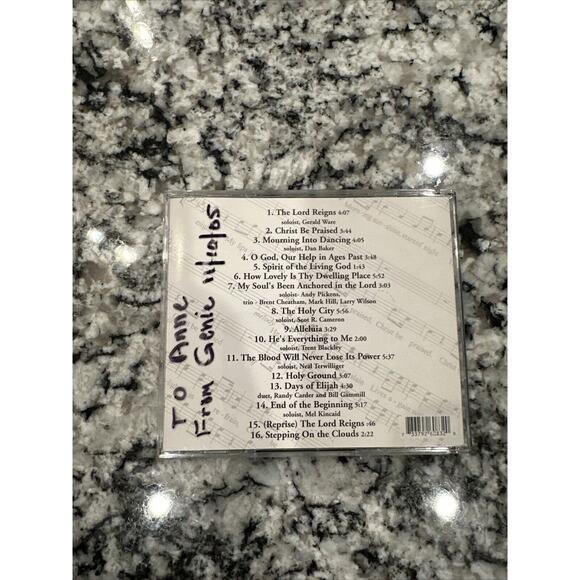 TO Anne
From Genie 11/20/05
1. The Lord Reigns 4:07
soloist, Gerald Ware
2. Christ Be Praised 3:44
3. Mourning Into Dancing 4:05
soloist, Dan Baker
4. O God, Our Help in Ages Past 3:48
5. Spirit of the Living God 1:43
6. How Lovely Is Thy Dwelling Place 5:52
7. My Soul's Been Anchored in the Lord 3:03
soloist- Andy Pickens,
trio - Brent Cheatham, Mark Hill, Larry Wilson
8. The Holy City 5:56
soloist, Scot R. Cameron
9. Alleluia 3:29
10. He's Everything to Me 2:00
soloist, Trent Blackley
11. The Blood Will Never Lose Its Power 5:37
soloist, Neal Terwilliger
12. Holy Ground 3:07
13. Days of Elijah 4:30
duet, Randy Carder and Bill Gammill
14. End of the Beginning 5:17
soloist, Mel Kincaid
15. (Reprise) The Lord Reigns :46
16. Stepping On the Clouds 2:22